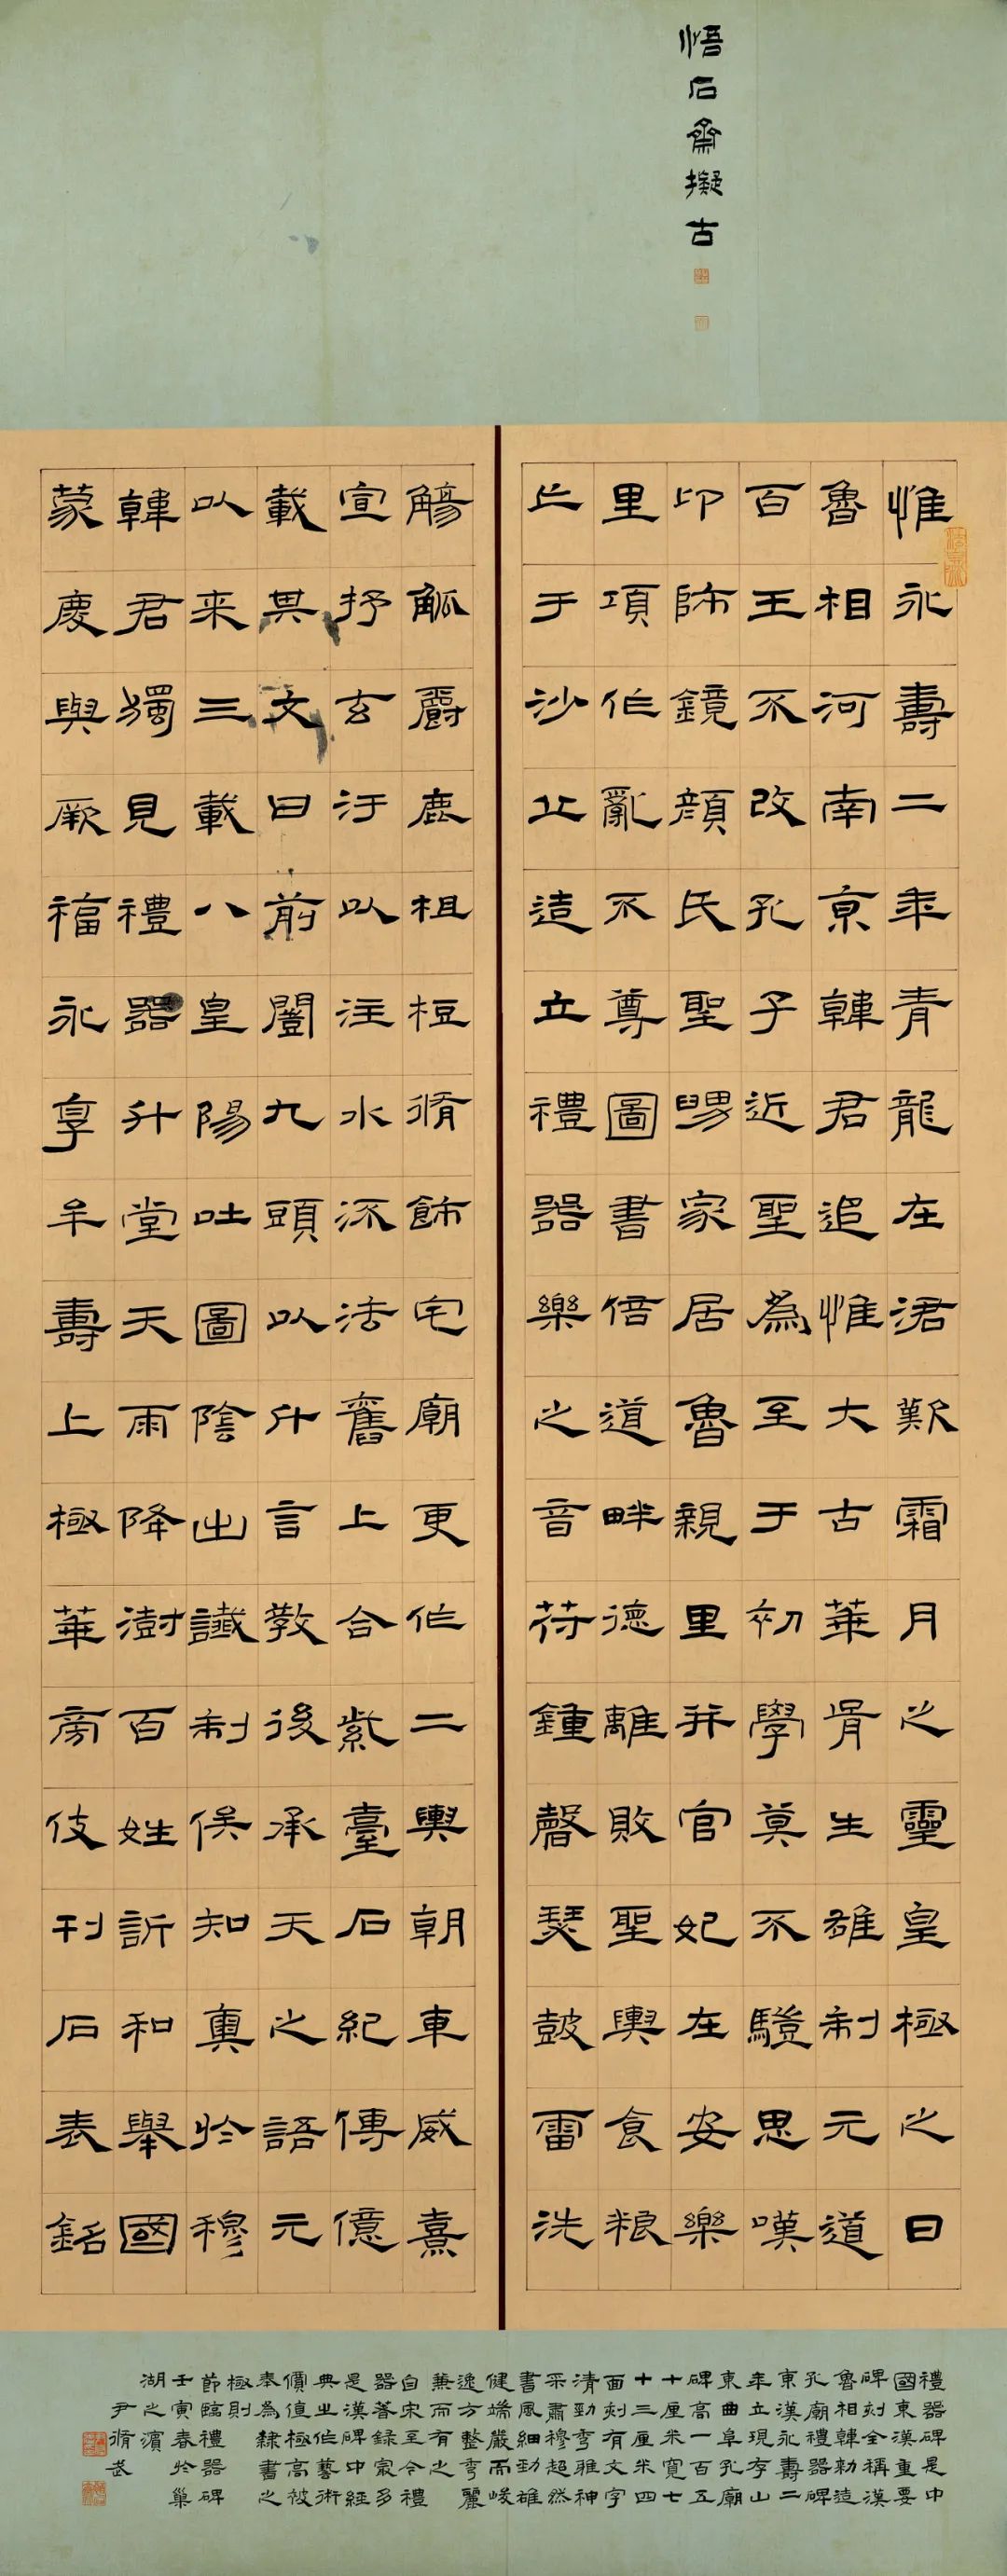 悟石齋擬古
惟永壽二年青龍在涒歎霜月之靈皇極之日
魯相河南京韓君追惟大古華胥生雄制元道
百王不改孔子近聖為至于初學莫不驥思嘆
卬師鏡顏氏聖舅家居魯親里并官妃在安樂
里項作亂不尊圖書倍道畔德離敗聖輿食粮
亡于沙丘造立禮器樂之音苻鍾磬瑟鼓雷洗
觴觚爵鹿柤梪脩飾宅廟更作二輿朝車威熹
宣抒玄汙以注水流法舊上合紫臺石紀傳億
載其文曰前闓九頭以升言教後承天之語元
以來三載八皇陽吐圖陰出讖制俟知奧於穆
韓君獨見禮器升堂天雨降澍百姓訢和舉國
蒙慶與厥福永享牟壽上極華旁伎刊石表銘
禮器碑是中
國東漢重要
碑刻全稱漢
魯相韓勑造
孔廟禮器碑
東漢永壽二
年立現存山
東曲阜孔廟
碑高一百五
十厘米寬七
十三厘米四
面刻有文字
清勁秀雅神
采肅穆超然
書風細勁雄
健端嚴而峻
逸方整秀麗
兼而有之
自宋至今禮
器著錄最多
是漢碑中經
典之作藝術
價值極高被
奉為隸書之
極則
節臨禮器碑
壬寅春於巢
湖之濱
尹脩武